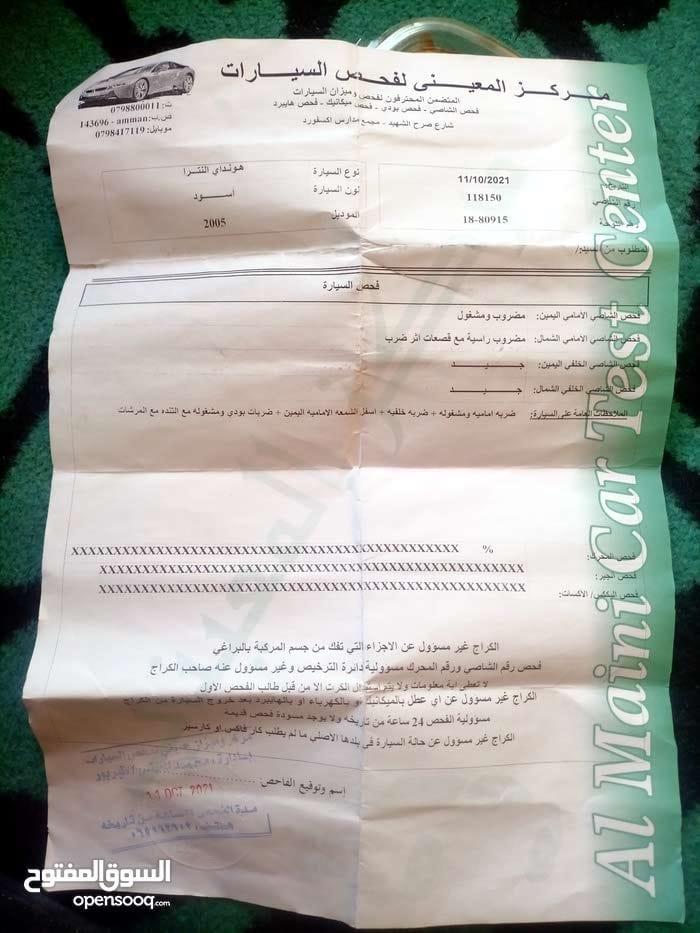 مركز المعيني لفحص السيارات
المتضمن المحترفون لفحص وميزان السيارات
فحص الشاصي - فحص بودي - فحص ميكانيك - فحص هايبرد
شارع صرح الشهيد - مجمع مدارس اكسفورد
ت: 0798800011
ص.ب: amman - 143696
موبايل: 0798417119
التاريخ: 11/10/2021
رقم الشاصي 118150
رقم اللوحة 18-80915
نوع السيارة هونداي النترا
لون السيارة أسود
الموديل 2005
المطلوب من السيد/:
فحص السيارة
فحص الشاصي الأمامي اليمين: مضروب ومشغول
فحص الشاصي الأمامي الشمال: مضروب راسية مع قصعات اثر ضرب
فحص الشاصي الخلفي اليمين: جـــيـــد
فحص الشاصي الخلفي الشمال: جـــيـــد
الملاحظات العامة على السيارة: ضربه اماميه ومشغوله + ضربه خلفيه + اسفل الشمعه الاماميه اليمين + ضربات بودي ومشغوله مع التنده مع المرشات
فحص المحرك: % XXXXXXXXXXXXXXXXXXXXXXXXXXXXXXXXXXXXXXXXXXXXX
فحص الجير: XXXXXXXXXXXXXXXXXXXXXXXXXXXXXXXXXXXXXXXXXXXXXXXXX
فحص البككس/ الاكسات: XXXXXXXXXXXXXXXXXXXXXXXXXXXXXXXXXXXXXXXXXXXXXXXXX
الكراج غير مسؤول عن الاجزاء التي تفك من جسم المركبة بالبراغي
فحص رقم الشاصي ورقم المحرك مسوولية دائرة الترخيص وغير مسوول عنه صاحب الكراج
لا تعطى اية معلومات ولا يتم استبدال الكرت الا من قبل طالب الفحص الاول
الكراج غير مسوول عن اي عطل بالميكانيك او بالكهرباء او بالهايبرد بعد خروج السيارة من الكراج
مسوولية الفحص 24 ساعة من تاريخه ولا يوجد مسودة فحص قديمة
الكراج غير مسوول عن حالة السيارة في بلدها الاصلي ما لم يطلب كار فاكس او كارسير
إسم وتوقيع الفاحص:
OCT 2021
Al Maini Car Test Center
السوق المفتوح
opensooq.com